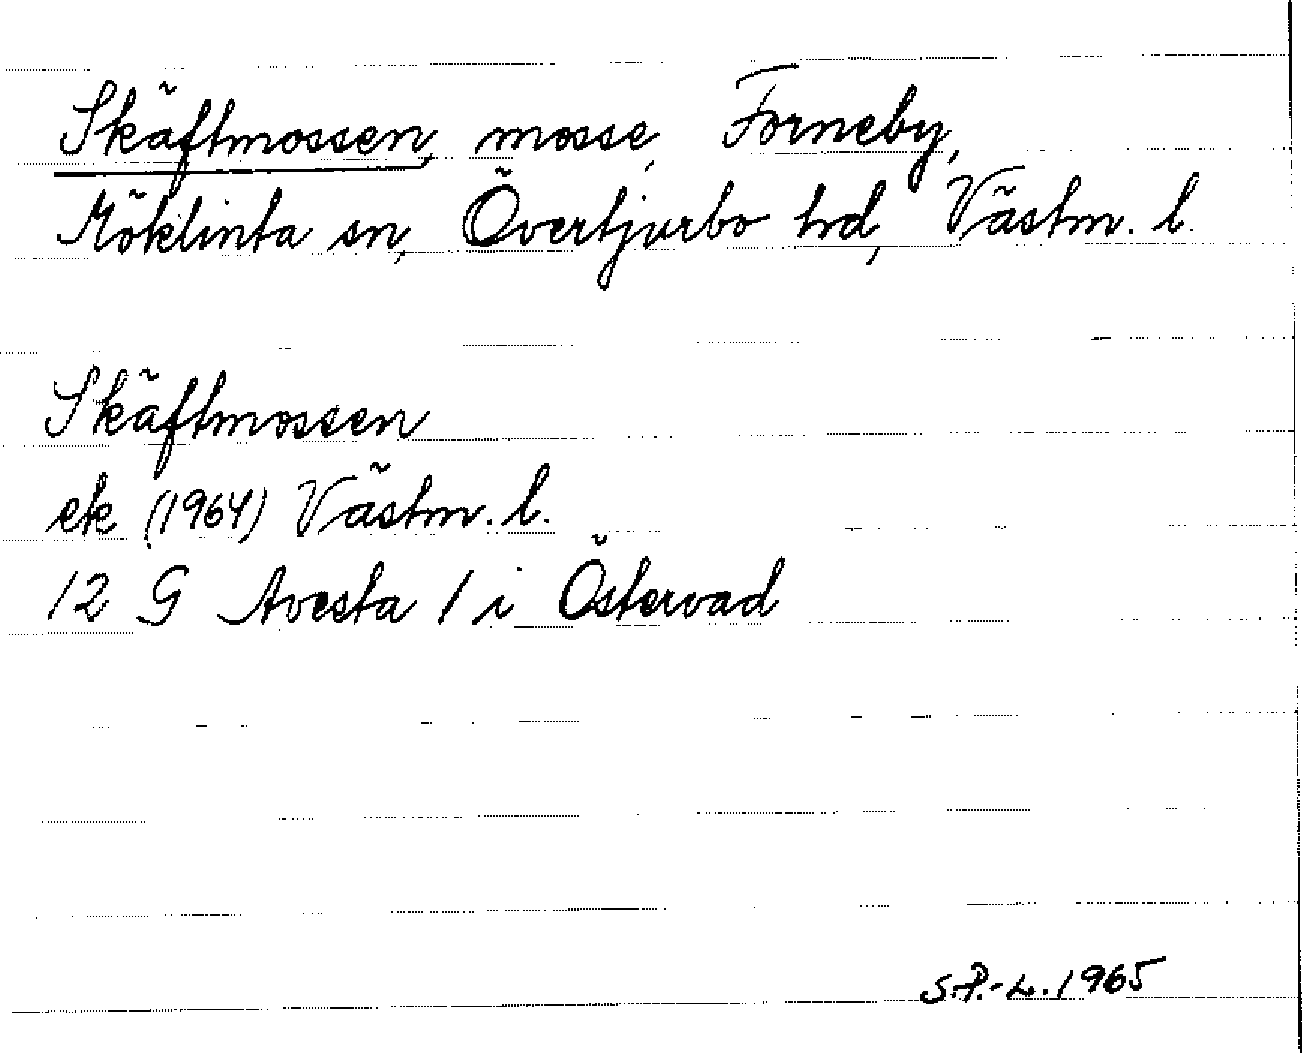 Skäftmossen, mosse, Forneby,
Möklinta sn, Övertjurbo hd, Västm. l.
Skäftmossen
ek (1964) Västm. l.
12 G Avesta 1 i Östervad
S.P.-L. 1965